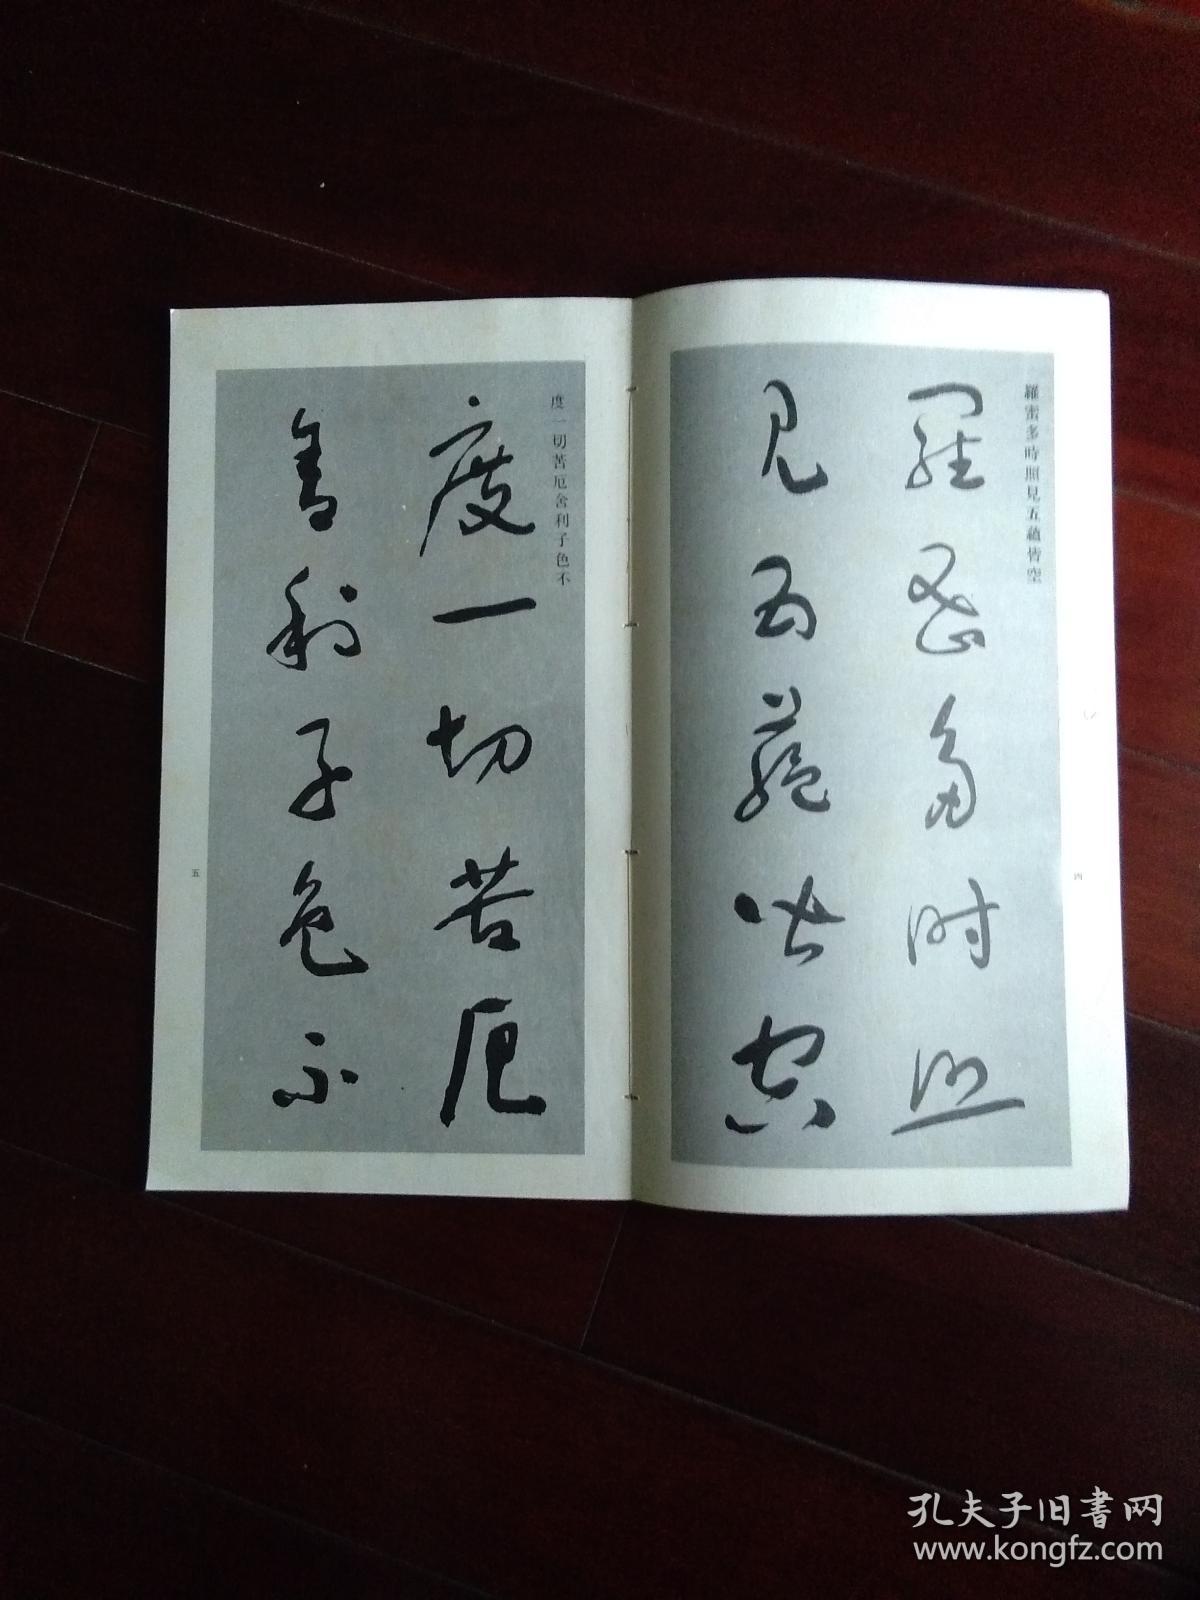 羅蜜多時照見五蘊皆空
羅蜜多時照
見五蘊皆空
四
度一切苦厄舍利子色不
度一切苦厄
舍利子色不
五
孔夫子旧书网
www.kongfz.com